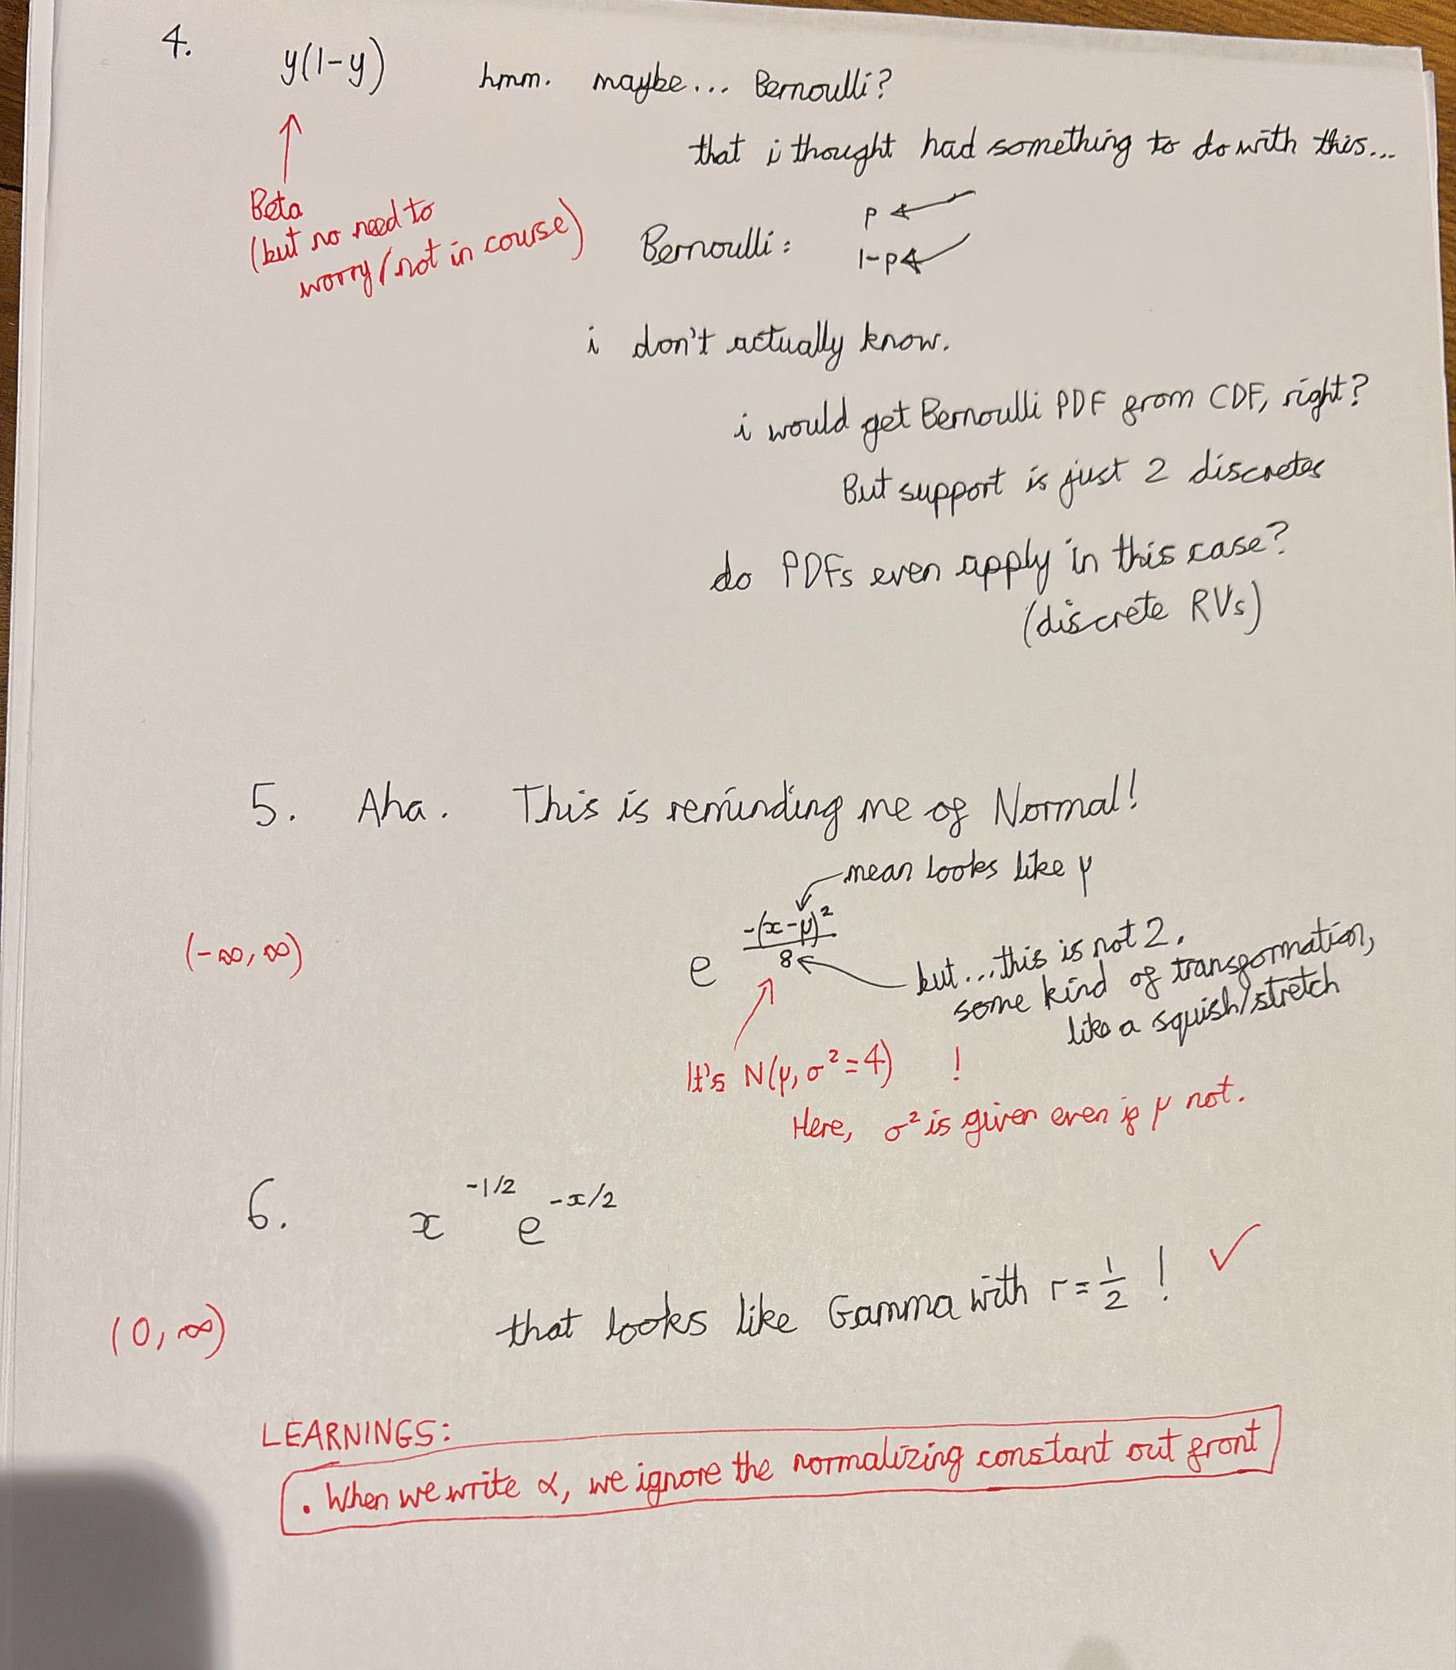 4. y(1-y) hmm. maybe... Bernoulli?
that i thought had something to do with this...
Beta
(but no need to
worry/not in course)
Bernoulli: p
1-p
i don't actually know.
i would get Bernoulli PDF from CDF, right?
But support is just 2 discretes
do PDFs even apply in this case?
(discrete RVs)
5. Aha. This is reminding me of Normal!
mean looks like μ
(-∞, ∞)
e^{-(x-μ)²/8}
but...this is not 2.
some kind of transformation,
like a squish/stretch
It's N(μ, σ²=4) !
Here, σ² is given even if μ not.
6. x^{-1/2} e^{-x/2}
that looks like Gamma with r=1/2 ! ✓
(0, ∞)
LEARNINGS:
• When we write ∝, we ignore the normalizing constant out front